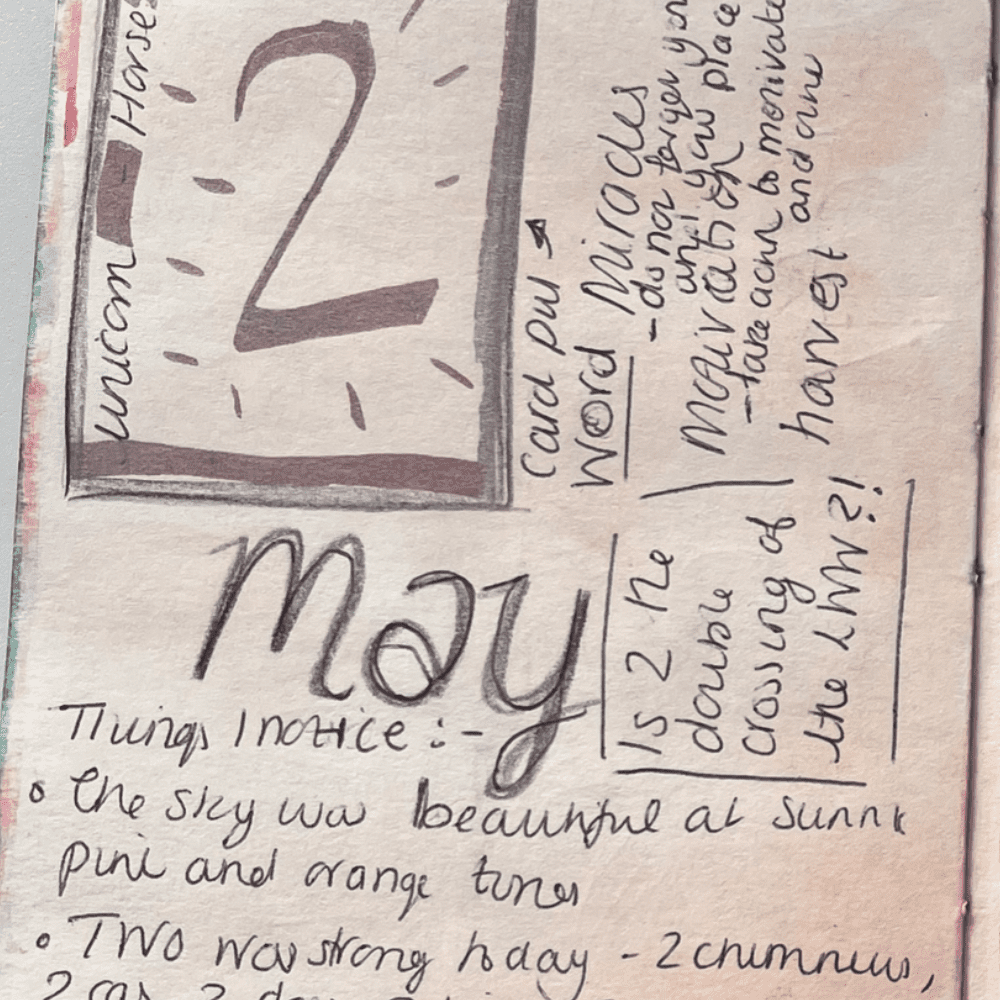 unicorn - Horses
2
card pull →
word Miracles
- do not forget your
and your place
Motivation
- take action to motivate
and
harvest
May
Is 2 the
double
crossing of
the LMW?!
Things I notice :-
• The sky was beautiful at
pink and orange tones
• Two was strong today - 2 chimneys,
2 2